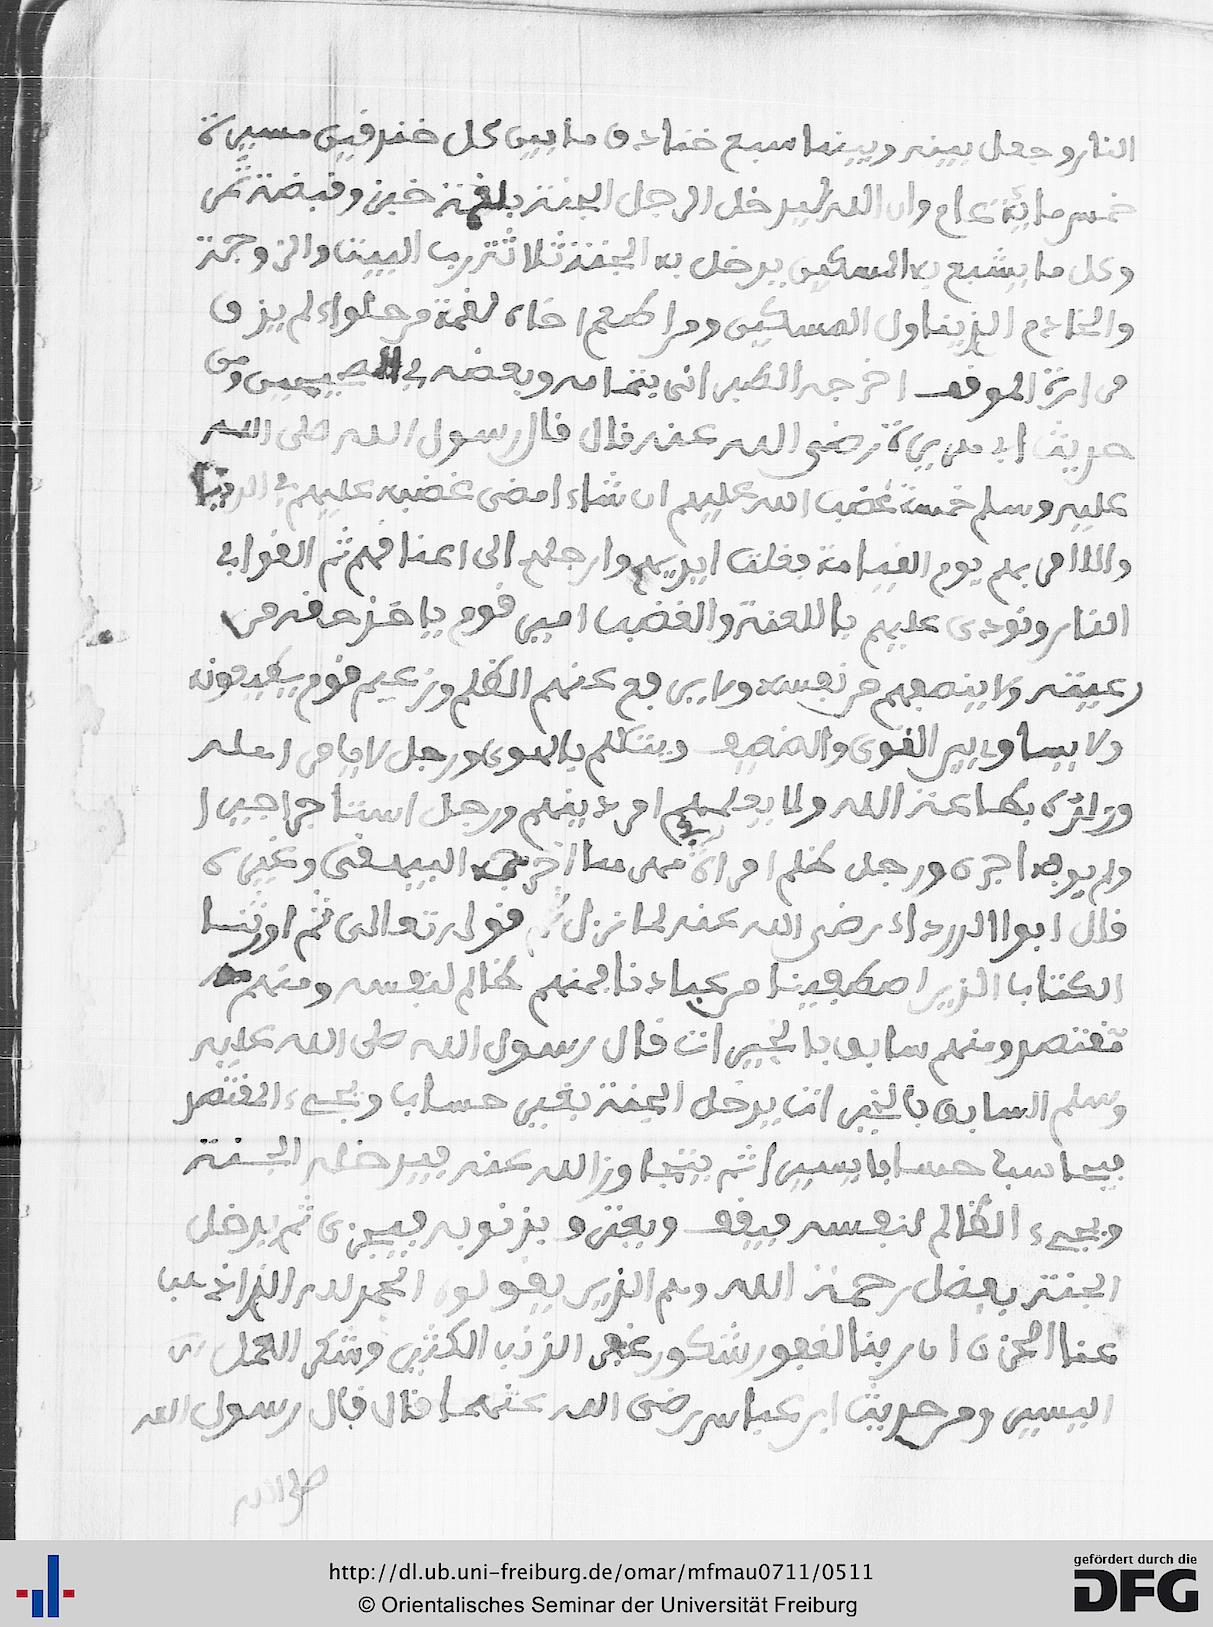 النار وجعل بينه وبينها سبع خنادق ما بين كل خندقين مسيرة
خمس مائة عام وان الله ليدخل الرجل الجنة بلقمة خبز وقبضة تمر
وكل ما يشبع به المسكين يدخل به الجنة ثلاثة رب البيت والزوجة
والخادم الذي يناول المسكين ومن اطعم اخاه لقمة من حلواء لم يذق
مرارة الموقف اخرجه الطبراني بتمامه وبعضه في الصحيحين ومن
حديث ابي هريرة رضي الله عنه قال قال رسول الله صلى الله
عليه وسلم خمسة غضب الله عليهم ان شاء امضى غضبه عليهم في الدنيا
والا امر بهم يوم القيامة فغلت ايديهم وارجلهم الى اعناقهم ثم القوا في
النار ونودي عليهم باللعنة والغضب امير قوم ياخذ حقه من
رعيته ولا ينصفهم من نفسه ولا يرفع عنهم الظلم وزعيم قوم يطيعونه
ولا يساوي بين القوي والضعيف ويتكلم بالهوى ورجل لا يامر اهله
وولده بطاعة الله ولا يعلمهم امر دينهم ورجل استاجر اجيرا
ولم يوفه اجره ورجل ظلم امراة مهرها اخرجه البيهقي وغيره
قال ابوا الدرداء رضي الله عنه لما نزل قوله تعالى ثم اورثنا
الكتاب الذين اصطفينا من عبادنا فمنهم ظالم لنفسه ومنهم
مقتصد ومنهم سابق بالخيرات قال رسول الله صلى الله عليه
وسلم السابق بالخيرات يدخل الجنة بغير حساب ويجيء المقتصد
يحاسب حسابا يسيرا ثم يتجاوز الله عنه فيدخله الجنة
ويجيء الظالم لنفسه فيوقف ويعترف بذنوبه فيجزى ثم يدخل
الجنة بفضل رحمة الله وهم الذين يقولون الحمد لله الذي اذهب
عنا الحزن ان ربنا لغفور شكور غفر الذنب الكثير وشكر العمل
اليسير ومن حديث ابن عباس رضي الله عنهما قال قال رسول الله
صلى الله
http://dl.ub.uni-freiburg.de/omar/mfmau0711/0511
© Orientalisches Seminar der Universität Freiburg
gefördert durch die
DFG